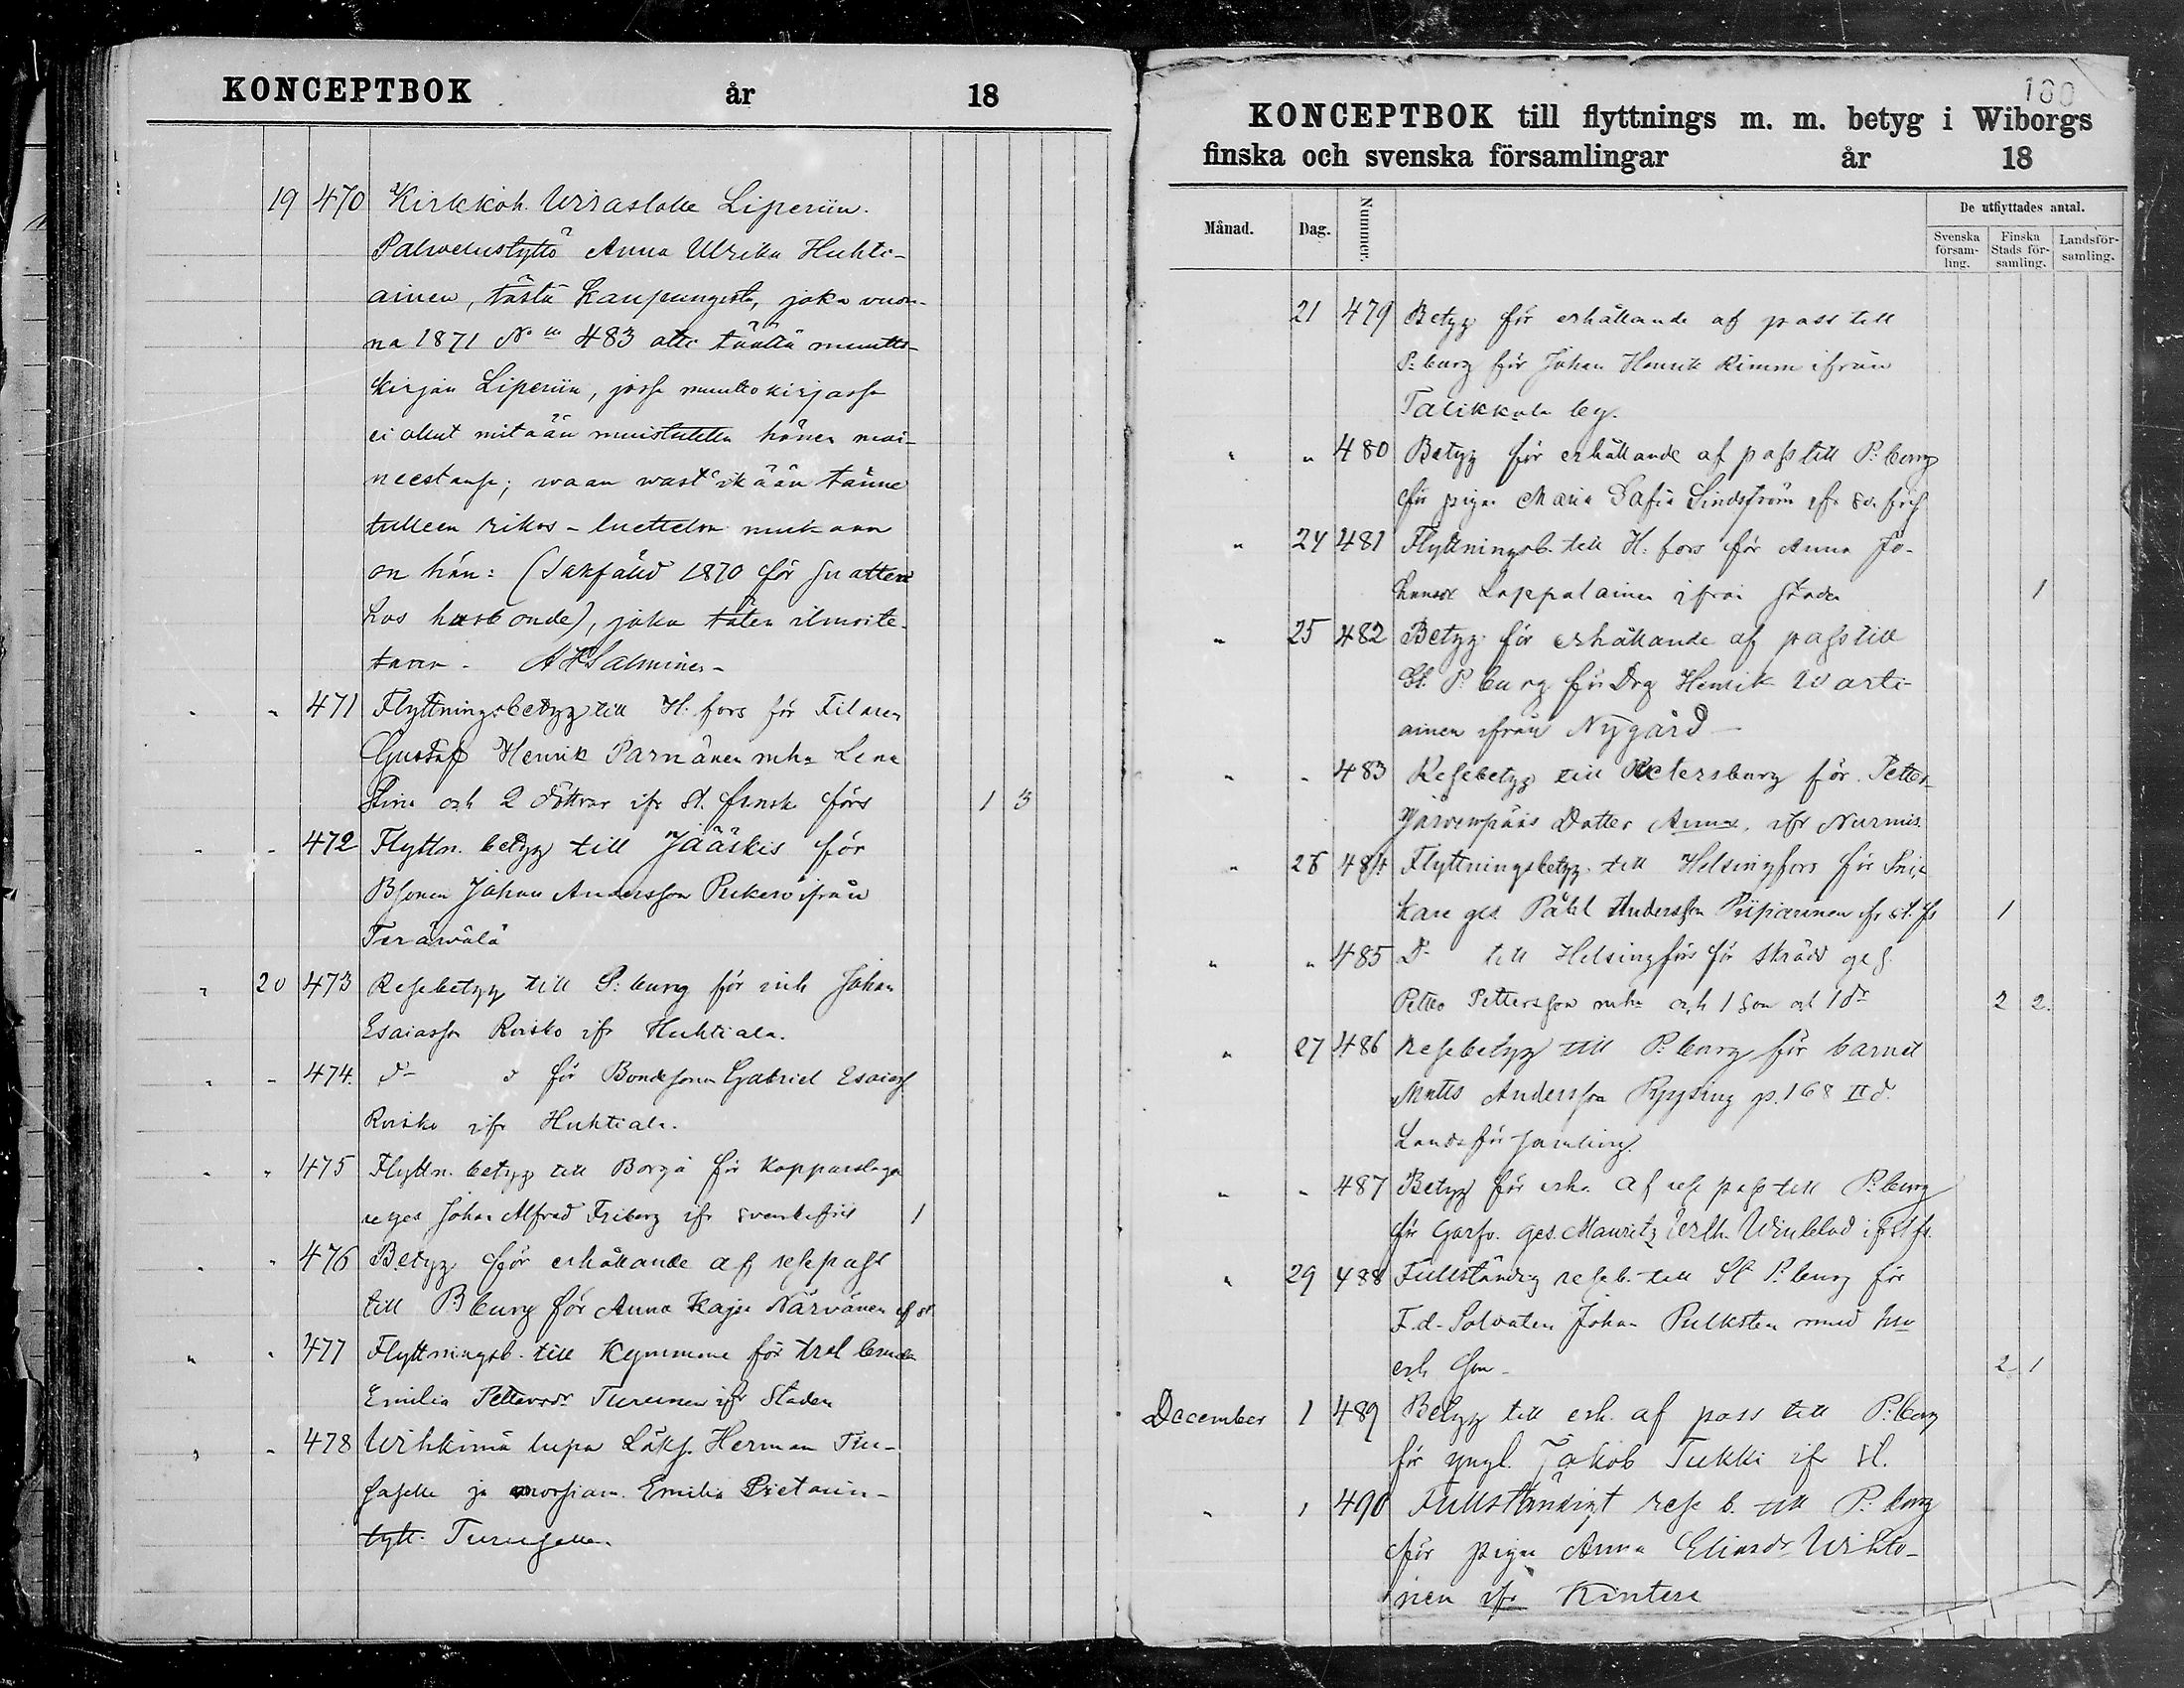 KONCEPTBOK år 18
19 470 Kirkkoh. Virastolle Liperiin.
Palwelustyttö Anna Ulrika Huhti-
ainen, tästä Kaupungista, joka vuon-
na 1871 N:n 483 otti täältä muutto-
kirjan Liperiin, jossa muuttokirjassa
ei ollut mitään muistutettu hänen mai-
neestansa; waan wast'ikään tänne
tulleen rikos-luettelon mukaan
on hän: (Sakfäld 1870 för snatteri
hos husbonde), joka täten ilmoite-
taan. A H Salminen
" " 471 Flyttningsbetyg till H:fors för Filaren
Gustaf Henrik Parnänen m. h. Lena
Stina och 2 döttrar ifr St. finsk förs 1 3
" " 472 Flyttn. betyg till Jääskis för
Bsonen Johan Andersson Pukero ifrån
Terävälä
" 20 473 Resebetyg till P:burg för inh Johan
Esaiasson Roisko ifr Huhtiala.
" " 474. d:o d för Bondsonen Gabriel Esaiass
Roisko ifr Huhtiala.
" " 475 Flyttn. betyg till Borgå för Kopparslaga
reges Johan Alfred Friberg ifr svenska 1
" " 476 Betyg för erhållande af resepass
till P:burg för Anna Kajsa Närvänen if st
" " 477 Flyttningsb. till Kymmene för
Emilia Pettersdr Turunen ifr Staden
" " 478 Wihkimä lupa Läks. Herman
ja morsian. Emilia
tytt.
180
KONCEPTBOK till flyttnings m. m. betyg i Wiborgs
finska och svenska församlingar år 18
Månad. Dag. Nummer. De utflyttades antal.
Svenska församling. Finska Stads församling. Landsförsamling.
21 479 Betyg för erhållande af pass till
P:burg för Johan Henrik Kimm ifrån
Talikkala by.
" " 480 Betyg för erhållande af pass till P:burg
för pigan Maria Sofia Lindström ifr sv.förs
" 24 481 Flyttningsb. till H:fors för Anna Jo-
hansdr Lappalainen ifrån staden 1
" 25 482 Betyg för erhållande af pass till
St. P:burg för Drg Henrik Warti-
ainen ifrån Nygård
" " 483 Resebetyg till Petersburg för Petter
Järvenpääs Dotter Anna, ifr Nurmis.
" 26 484 Flyttningsbetyg till Helsingfors för Sni-
kare ges. Påhl Andersson Piiparinen ifr st. fs 1
" " 485 D:o till Helsingfors för skrädd ges.
Petter Pettersson m. h. och 1 son och 1 dr 2 2.
" 27 486 Resebetyg till P:burg för barnet
Matts Andersson Pyysing p. 168 II d.
Landsförsamling.
" " 487 Betyg för erh. af rese pass till P:burg
för Garfv. ges. Mauritz Wilh. Winblad if st fs.
" 29 488 Fullständig reseb. till St P:burg för
F.d. Soldaten Johan Pulksten med hu
och son 2 1
December 1 489 Betyg till erh. af pass till P:burg
för yngl. Jakob Tukki ifr st.
" 1 490 Fullständigt rese b. till P:burg
för pigan Anna Eliasdr Wihto-
nen ifr Kintere